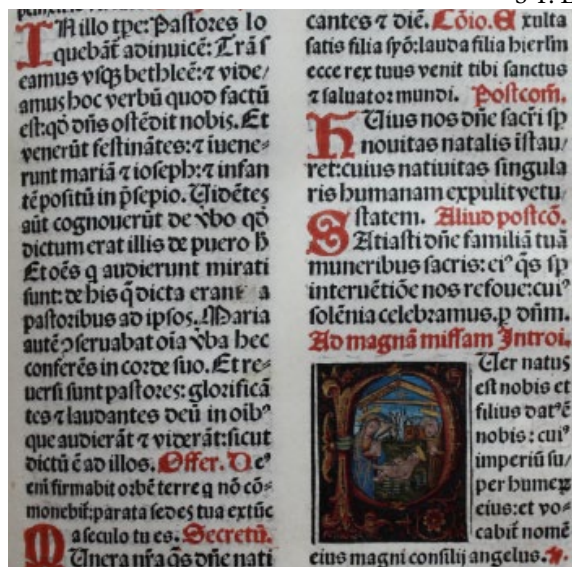 IN illo tpe: Pastores lo
quebāt adinuicē: Trāſ
eamus vſqꝫ bethleē: ⁊ vide/
amus hoc verbū quod factū
eſt: qd̄ dn̄s oſtēdit nobis. Et
venerūt feſtinātes: ⁊ iuene⸗
runt mariā ⁊ ioſeph: ⁊ infan
tē poſitū in p̄ſepio. Uidētes
aūt cognouerūt de v̄bo qd̄
dictum erat illis de puero h̄
Et oēs q audierunt mirati
ſunt: de his q̄ dicta erant a
paſtoribus ad ipſos. Maria
autē ꝯſeruabat oīa v̄ba hec
conferēs in corde ſuo. Et re⸗
uerſi ſunt paſtores: glorificā
tes ⁊ laudantes deū in oībꝰ
que audierāt ⁊ viderāt: ſicut
dictū ē ad illos. Offer. Deꝰ
em̄ firmabit orbē terre q nō cō⸗
monebit̄: parata ſedes tua extūc
a ſeculo tu es. Secretū.
MUnera nr̄a q̄s dn̄e nati
cantes ⁊ diē. Cōio. Exulta
ſatis filia ſyō: lauda filia hierl̄m
ecce rex tuus venit tibi ſanctus
⁊ ſaluator mundi. Poſtcom̄.
HUius nos dn̄e ſacri ſp̄
nouitas natalis īſtau/
ret: cuius natiuitas ſingula
ris humanam expulit vetu/
ſtatem. Aliud poſtcō.
SAtiaſti dn̄e familiā tuā
muneribus ſacris: eiꝰ q̄s ſp̄
interuētiōe nos refoue: cuiꝰ
ſolēnia celebramus. p̲ dn̄m.
Ad magnā miſſam Introi.
PUer natus
eſt nobis et
filius datꝰ ē
nobis: cuiꝰ
imperiū ſu/
per humeꝝ
eius: et vo⸗
cabit̄ nomē
eius magni conſilij angelus.